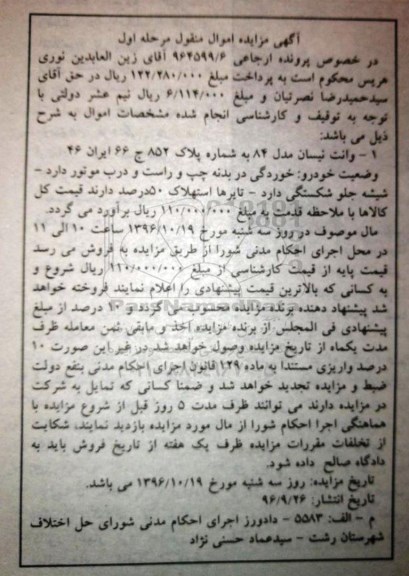 آگهی مزایده اموال منقول مرحله اول
در خصوص پرونده ارجاعی ۹۶۴۵۹۹/۶ آقای زین العابدین نوری
هریس محکوم است به پرداخت مبلغ ۱۲۲/۲۸۰/۰۰۰ ریال در حق آقای
سیدحمیدرضا نصرتیان و مبلغ ۶/۱۱۴/۰۰۰ ریال نیم عشر دولتی با
توجه به توقیف و کارشناسی انجام شده مشخصات اموال به شرح
ذیل می باشد:
۱ - وانت نیسان مدل ۸۴ به شماره پلاک ۸۵۲ ج ۶۶ ایران ۴۶
وضعیت خودرو: خوردگی در بدنه چپ و راست و درب موتور دارد -
شیشه جلو شکستگی دارد - تایرها استهلاک ۵۰درصد دارند قیمت کل
کالاها با ملاحظه قدمت به مبلغ ۱۱۰/۰۰۰/۰۰۰ ریال برآورد می گردد.
مال موصوف در روز سه شنبه مورخ ۱۳۹۶/۱۰/۱۹ ساعت ۱۰ الی ۱۱
در محل اجرای احکام مدنی شورا از طریق مزایده به فروش می رسد
قیمت پایه از قیمت کارشناسی از مبلغ ۱۱۰/۰۰۰/۰۰۰ ریال شروع و
به کسانی که بالاترین قیمت پیشنهادی را اعلام نمایند فروخته خواهد
شد پیشنهاد دهنده برنده مزایده محسوب می گردد و ۱۰ درصد از مبلغ
پیشنهادی فی المجلس از برنده مزایده اخذ و مابقی ثمن معامله ظرف
مدت یکماه از تاریخ مزایده وصول خواهد شد در غیر این صورت ۱۰
درصد واریزی مستندا به ماده ۱۲۹ قانون اجرای احکام مدنی بنفع دولت
ضبط و مزایده تجدید خواهد شد و ضمنا کسانی که تمایل به شرکت
در مزایده دارند می توانند ظرف مدت ۵ روز قبل از شروع مزایده با
هماهنگی اجرا احکام شورا از مال مورد مزایده بازدید نمایند، شکایت
از تخلفات مقررات مزایده ظرف یک هفته از تاریخ فروش باید به
دادگاه صالح داده شود.
تاریخ مزایده: روز سه شنبه مورخ ۱۳۹۶/۱۰/۱۹ می باشد.
تاریخ انتشار: ۹۶/۹/۲۶
م - الف: ۵۵۸۳ - دادورز اجرای احکام مدنی شورای حل اختلاف
شهرستان رشت - سیدعماد حسنی نژاد